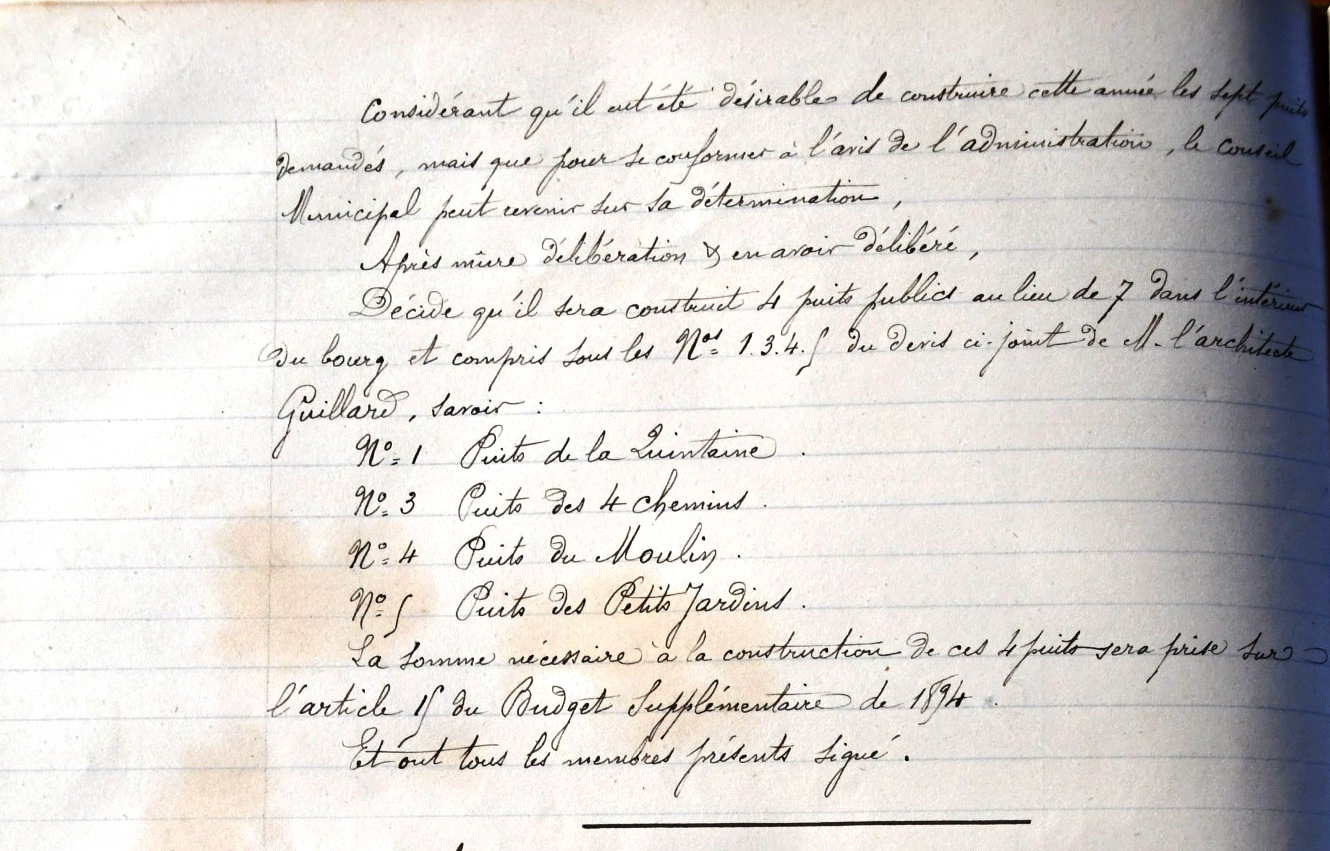 Considérant qu'il eut été désirable de construire cette année les sept puits
demandés, mais que pour se conformer à l'avis de l'administration, le conseil
Municipal peut revenir sur sa détermination,
Après mûre délibération & en avoir délibéré,
Décide qu'il sera construit 4 puits publics au lieu de 7 dans l'intérieur
du bourg et compris sous les Nos 1.3.4.5 du devis ci-joint de M. l'architecte
Guillard, savoir :
No 1 Puits de la Quintaine.
No 3 Puits des 4 chemins.
No 4 Puits du Moulin.
No 5 Puits des Petits Jardins.
La somme nécessaire à la construction de ces 4 puits sera prise sur
l'article 15 du Budget Supplémentaire de 1894.
Et ont tous les membres présents signé.